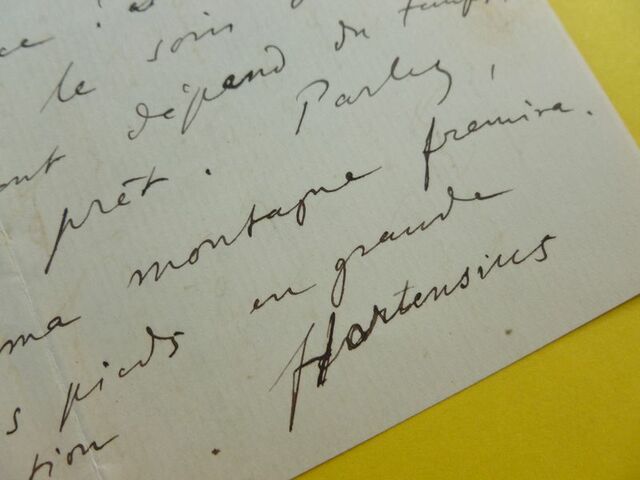 le soin
dépend du temps
prêt. Parlez,
ma montagne fremira.
pieds en grande
tion. Hortensius